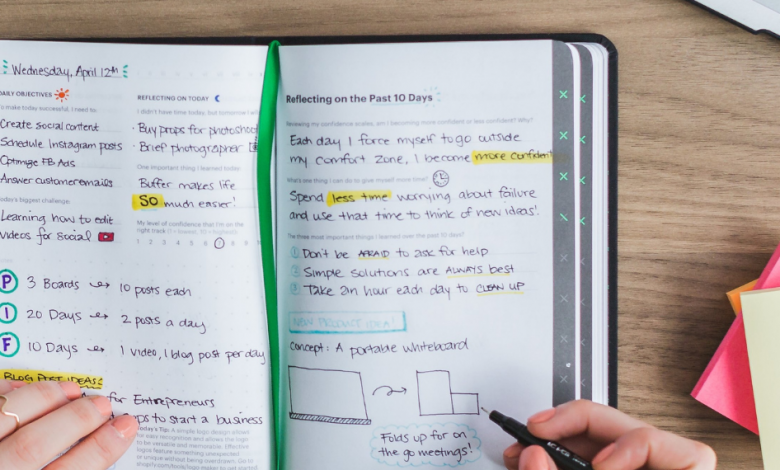 Wednesday, April 12th
DAILY OBJECTIVES
To make today successful, I need to:
Create social content
Schedule Instagram posts
Optimize FB Ads
Answer customer emails
Today's biggest challenge:
Learning how to edit
videos for social
REFLECTING ON TODAY
I didn't have time today, but tomorrow I will
· Buy props for photoshoot
· Brief photographer
One important thing I learned today:
Buffer makes life
SO much easier!
My level of confidence that I'm on the
right track
1 2 3 4 5 6 7 8 9
P 3 Boards → 10 posts each
I 20 Days → 2 posts a day
F 10 Days → 1 video, 1 blog post per day
BLOG POST IDEAS:
for Entrepreneurs
to start a business
Today's Tip: A simple logo design allows
for easy recognition and allows the logo
to be versatile and memorable. Effective
logos feature something unexpected
or unique without being overdrawn. Go to
Reflecting on the Past 10 Days
Reviewing my confidence scales, am I becoming more confident or less confident? Why?
Each day I force myself to go outside
my comfort zone, I become more confident
What's one thing I can do to give myself more time?
Spend less time worrying about failure
and use that time to think of new ideas!
The three most important things I learned over the past 10 days?
1 Don't be AFRAID to ask for help
2 Simple solutions are ALWAYS best
3 Take an hour each day to CLEAN UP
NEW PRODUCT IDEA!
Concept: A portable whiteboard
Folds up for on
the go meetings!